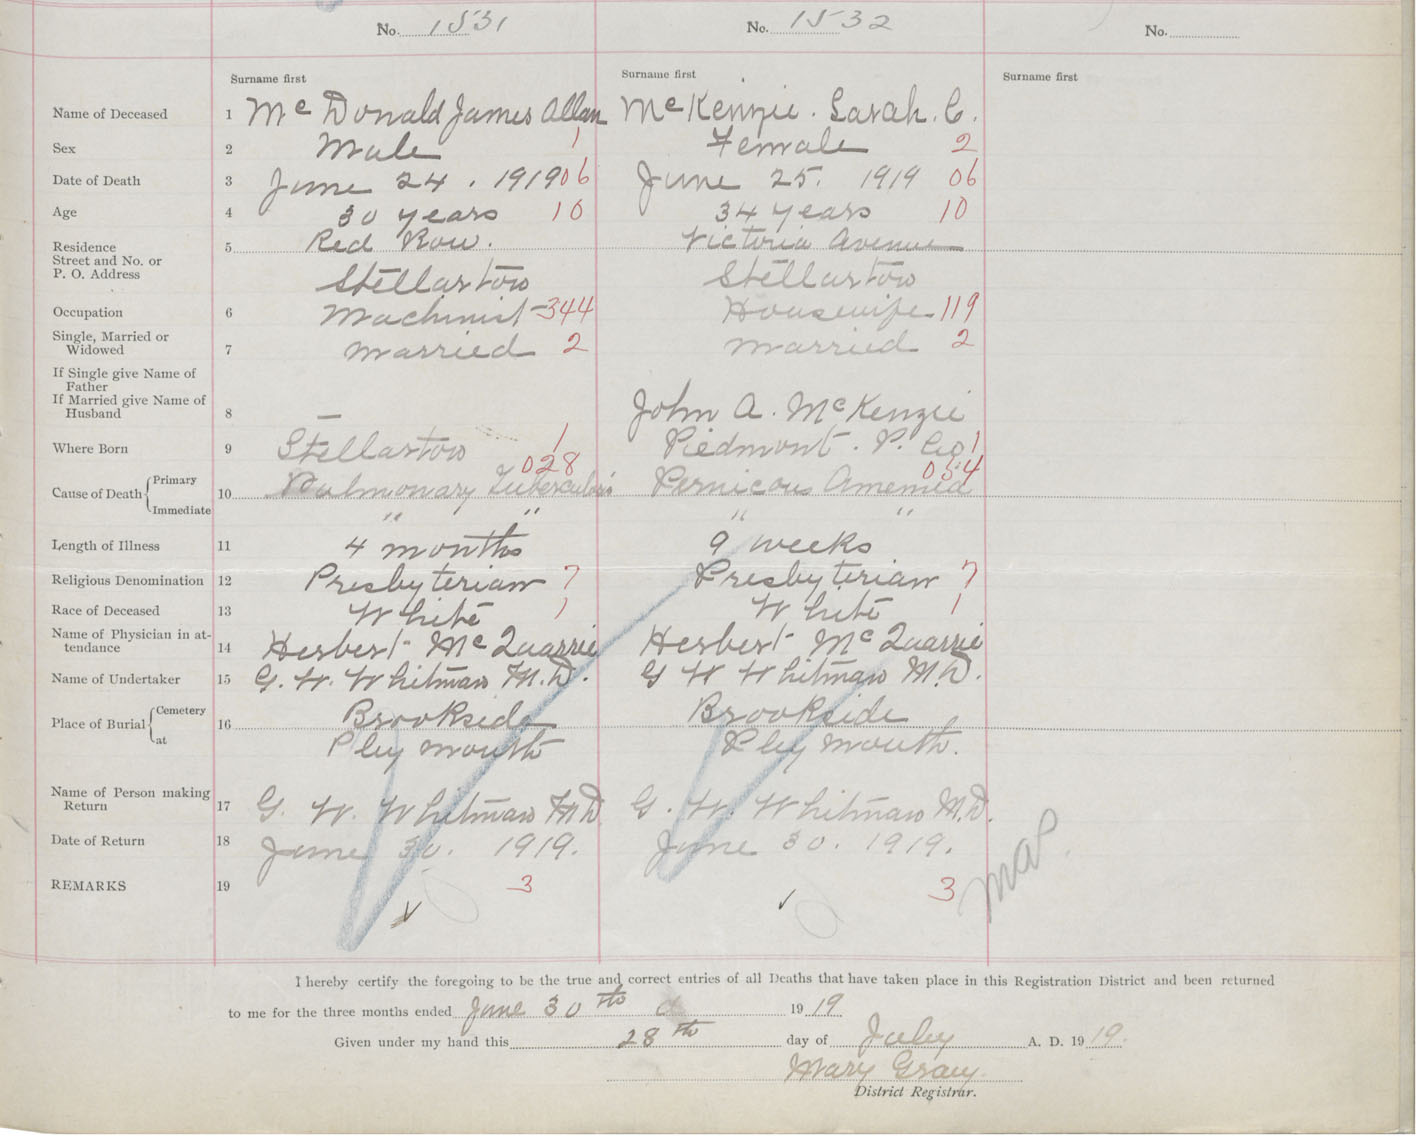 No. 1531 No. 1532 No.
Surname first Surname first Surname first
Name of Deceased 1 Mc Donald James Allan McKenzie. Sarah. C.
Sex 2 Male 1 Female 2
Date of Death 3 June 24. 1919 06 June 25. 1919 06
Age 4 30 years 10 34 years 10
Residence 5 Red Row. Victoria Avenue
Street and No. or
P. O. Address Stellarton Stellarton
Occupation 6 Machinist 344 Housewife 119
Single, Married or
Widowed 7 Married 2 Married 2
If Single give Name of
Father
If Married give Name of
Husband 8 — John A. McKenzie
Where Born 9 Stellarton 1 Piedmont. P. Co 1
028 034
Cause of Death { Primary 10 Pulmonary Tuberculosis Pernicous Amemia
Immediate " " " "
Length of Illness 11 4 months 9 weeks
Religious Denomination 12 Presbyterian 7 Presbyterian 7
Race of Deceased 13 White 1 White 1
Name of Physician in at-
tendance 14 Herbert McQuarrie Herbert McQuarrie
Name of Undertaker 15 G. W. Whitman M.D. G W Whitman M.D.
Place of Burial { Cemetery 16 Brookside Brookside
at Plymouth Plymouth.
Name of Person making
Return 17 G. W. Whitman M.D G. W. Whitman M.D.
Date of Return 18 June 30. 1919. June 30. 1919.
REMARKS 19 3 3
I hereby certify the foregoing to be the true and correct entries of all Deaths that have taken place in this Registration District and been returned
to me for the three months ended June 30th 1919
Given under my hand this 28th day of July A. D. 1919.
Mary Gray
District Registrar.